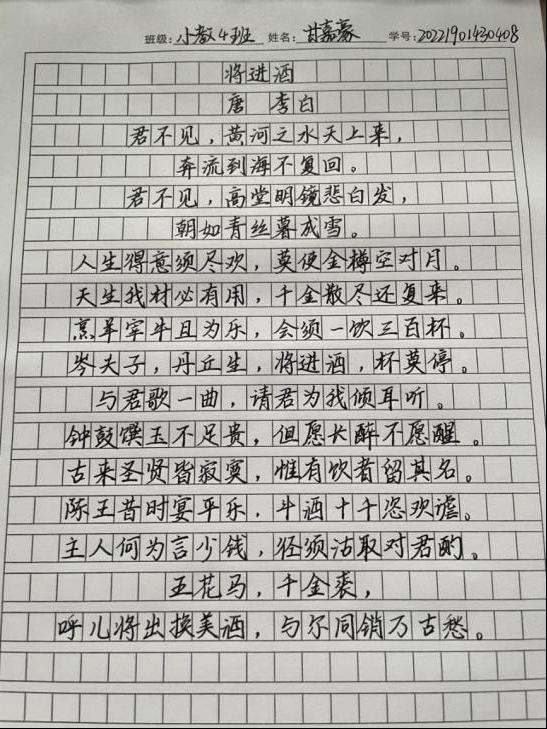 班级：小教4班 姓名：甘嘉豪 学号：20221901430408
将进酒
唐 李白
君不见，黄河之水天上来，
奔流到海不复回。
君不见，高堂明镜悲白发，
朝如青丝暮成雪。
人生得意须尽欢，莫使金樽空对月。
天生我材必有用，千金散尽还复来。
烹羊宰牛且为乐，会须一饮三百杯。
岑夫子，丹丘生，将进酒，杯莫停。
与君歌一曲，请君为我倾耳听。
钟鼓馔玉不足贵，但愿长醉不愿醒。
古来圣贤皆寂寞，惟有饮者留其名。
陈王昔时宴平乐，斗酒十千恣欢谑。
主人何为言少钱，径须沽取对君酌。
五花马，千金裘，
呼儿将出换美酒，与尔同销万古愁。